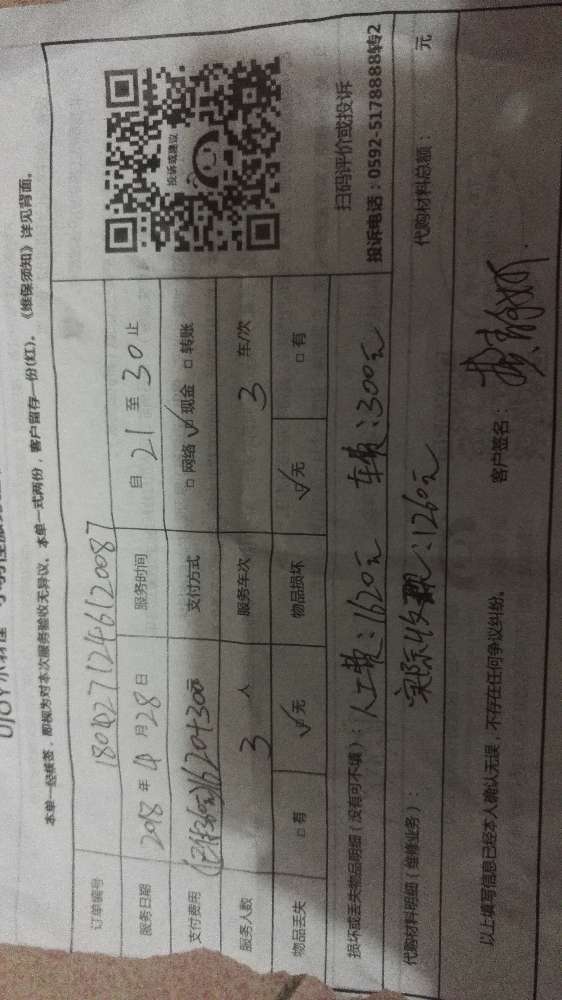 本单一经核签，即视为对本次服务验收无异议。本单一式两份，客户留存一份(红)。《维保须知》详见背面。
订单编号 1804271246120087
服务日期 2018 年 4 月 28 日 服务时间 自 21 至 30 止
支付费用 1620+300元 支付方式 □ 网络 ☑ 现金 □ 转账
服务人数 3 人 服务车次 3 车/次
物品丢失 □ 有 ☑ 无 物品损坏 ☑ 无 □ 有
投诉或建议
扫码评价或投诉
投诉电话：0592-5178888转2
损坏或丢失物品明细（没有可不填）：人工费：1620元 车费：300元
代购材料明细（维修业务）： 实际收：1260元 代购材料总额： 元
以上填写信息已经本人确认无误，不存在任何争议纠纷。 客户签名：